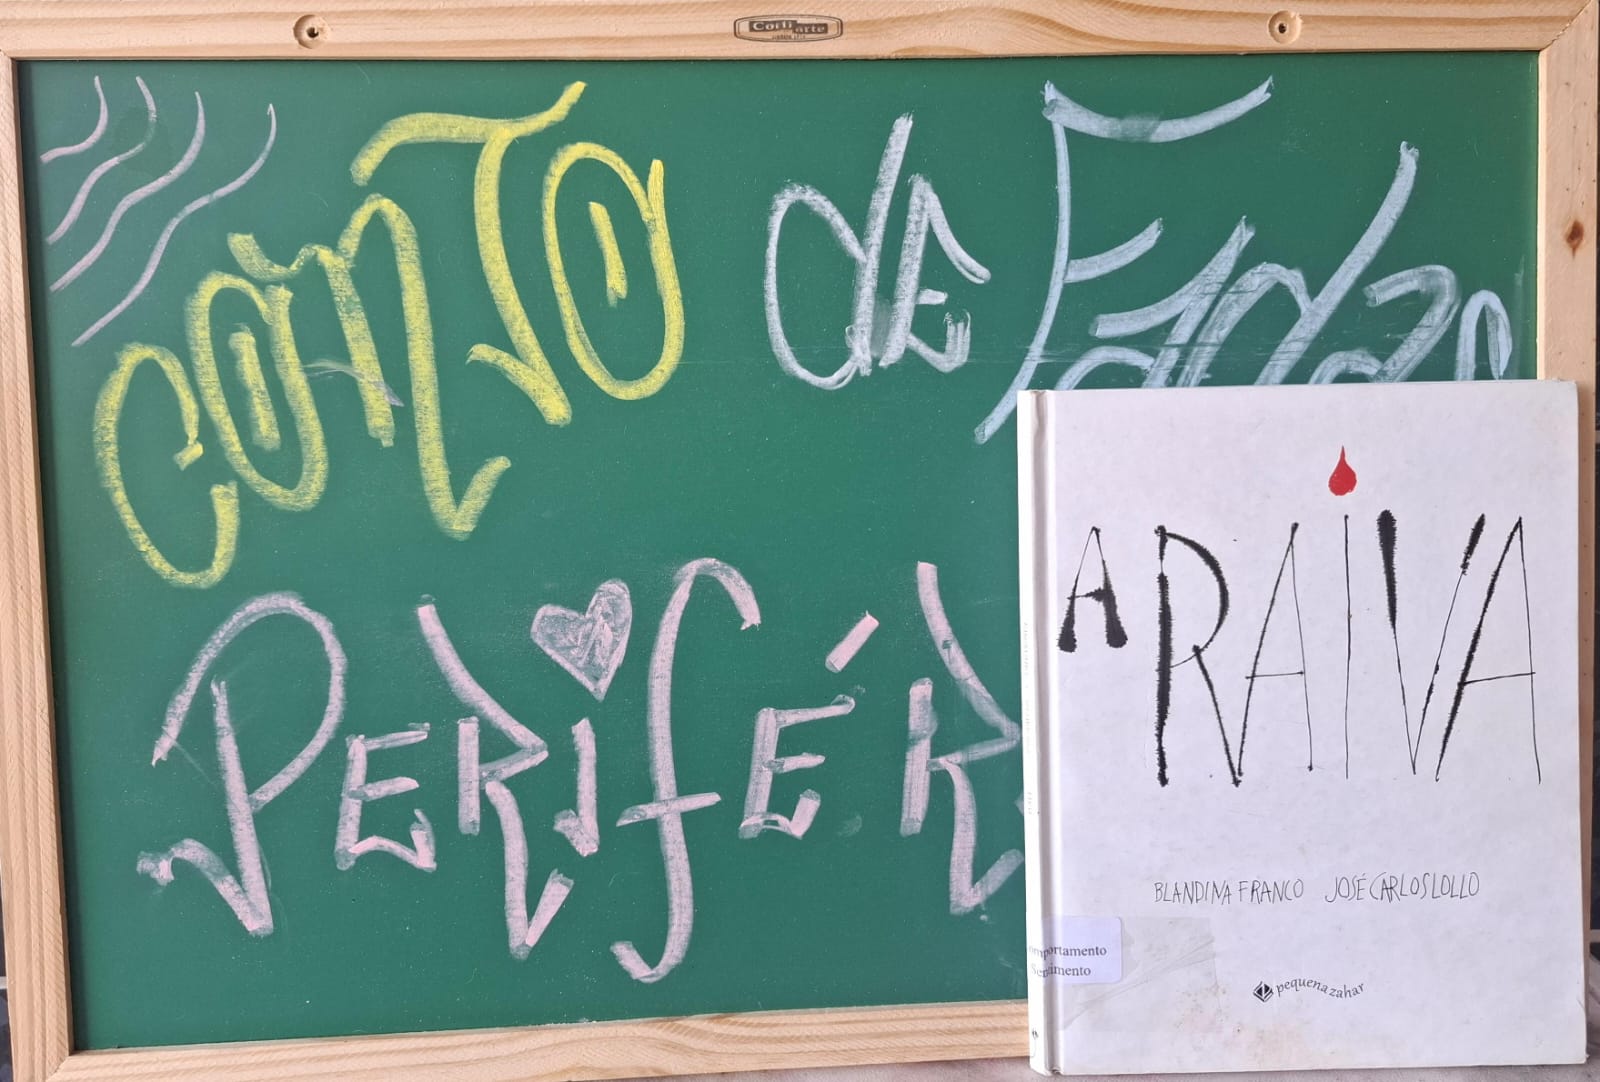 CONTO de Fadas
PERIFÉR
A RAIVA
BLANDINA FRANCO JOSÉ CARLOS LOLLO
omportamento
Sentimento
pequena zahar